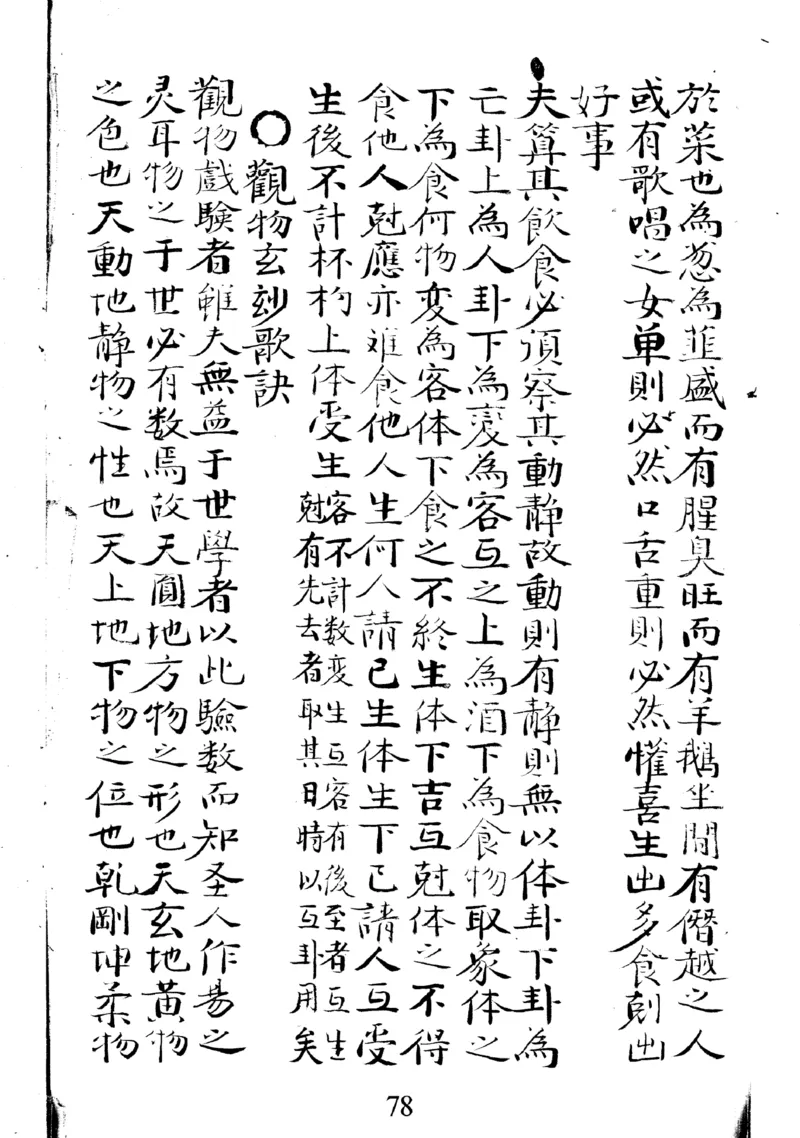 於菜也為葱為韮盛而有腥臭旺而有羊鵝坐間有僭越之人
或有歌唱之女单則必然口舌重則必然懽喜生出多食尅出
好事
夫算其飲食必須察其動静故動則有静則無以体卦下卦為
亡卦上為人卦下為变為客互之上為酒下為食物取象体之
下為食何物変為客体下食之不終生体下吉互尅体之不得
食他人尅應亦难食他人生何人請已生体生下已請人互受
生後不計杯杓上体受生客不計数変生互客有後至者互生
尅有先去者取其日時以互卦用矣
〇觀物玄妙歌訣
觀物戲驗者雖夫無益于世學者以此驗数而知圣人作昜之
灵耳物之于世必有数焉故天圓地方物之形也天玄地黄物
之色也天動地静物之性也天上地下物之位也乾剛坤柔物
78